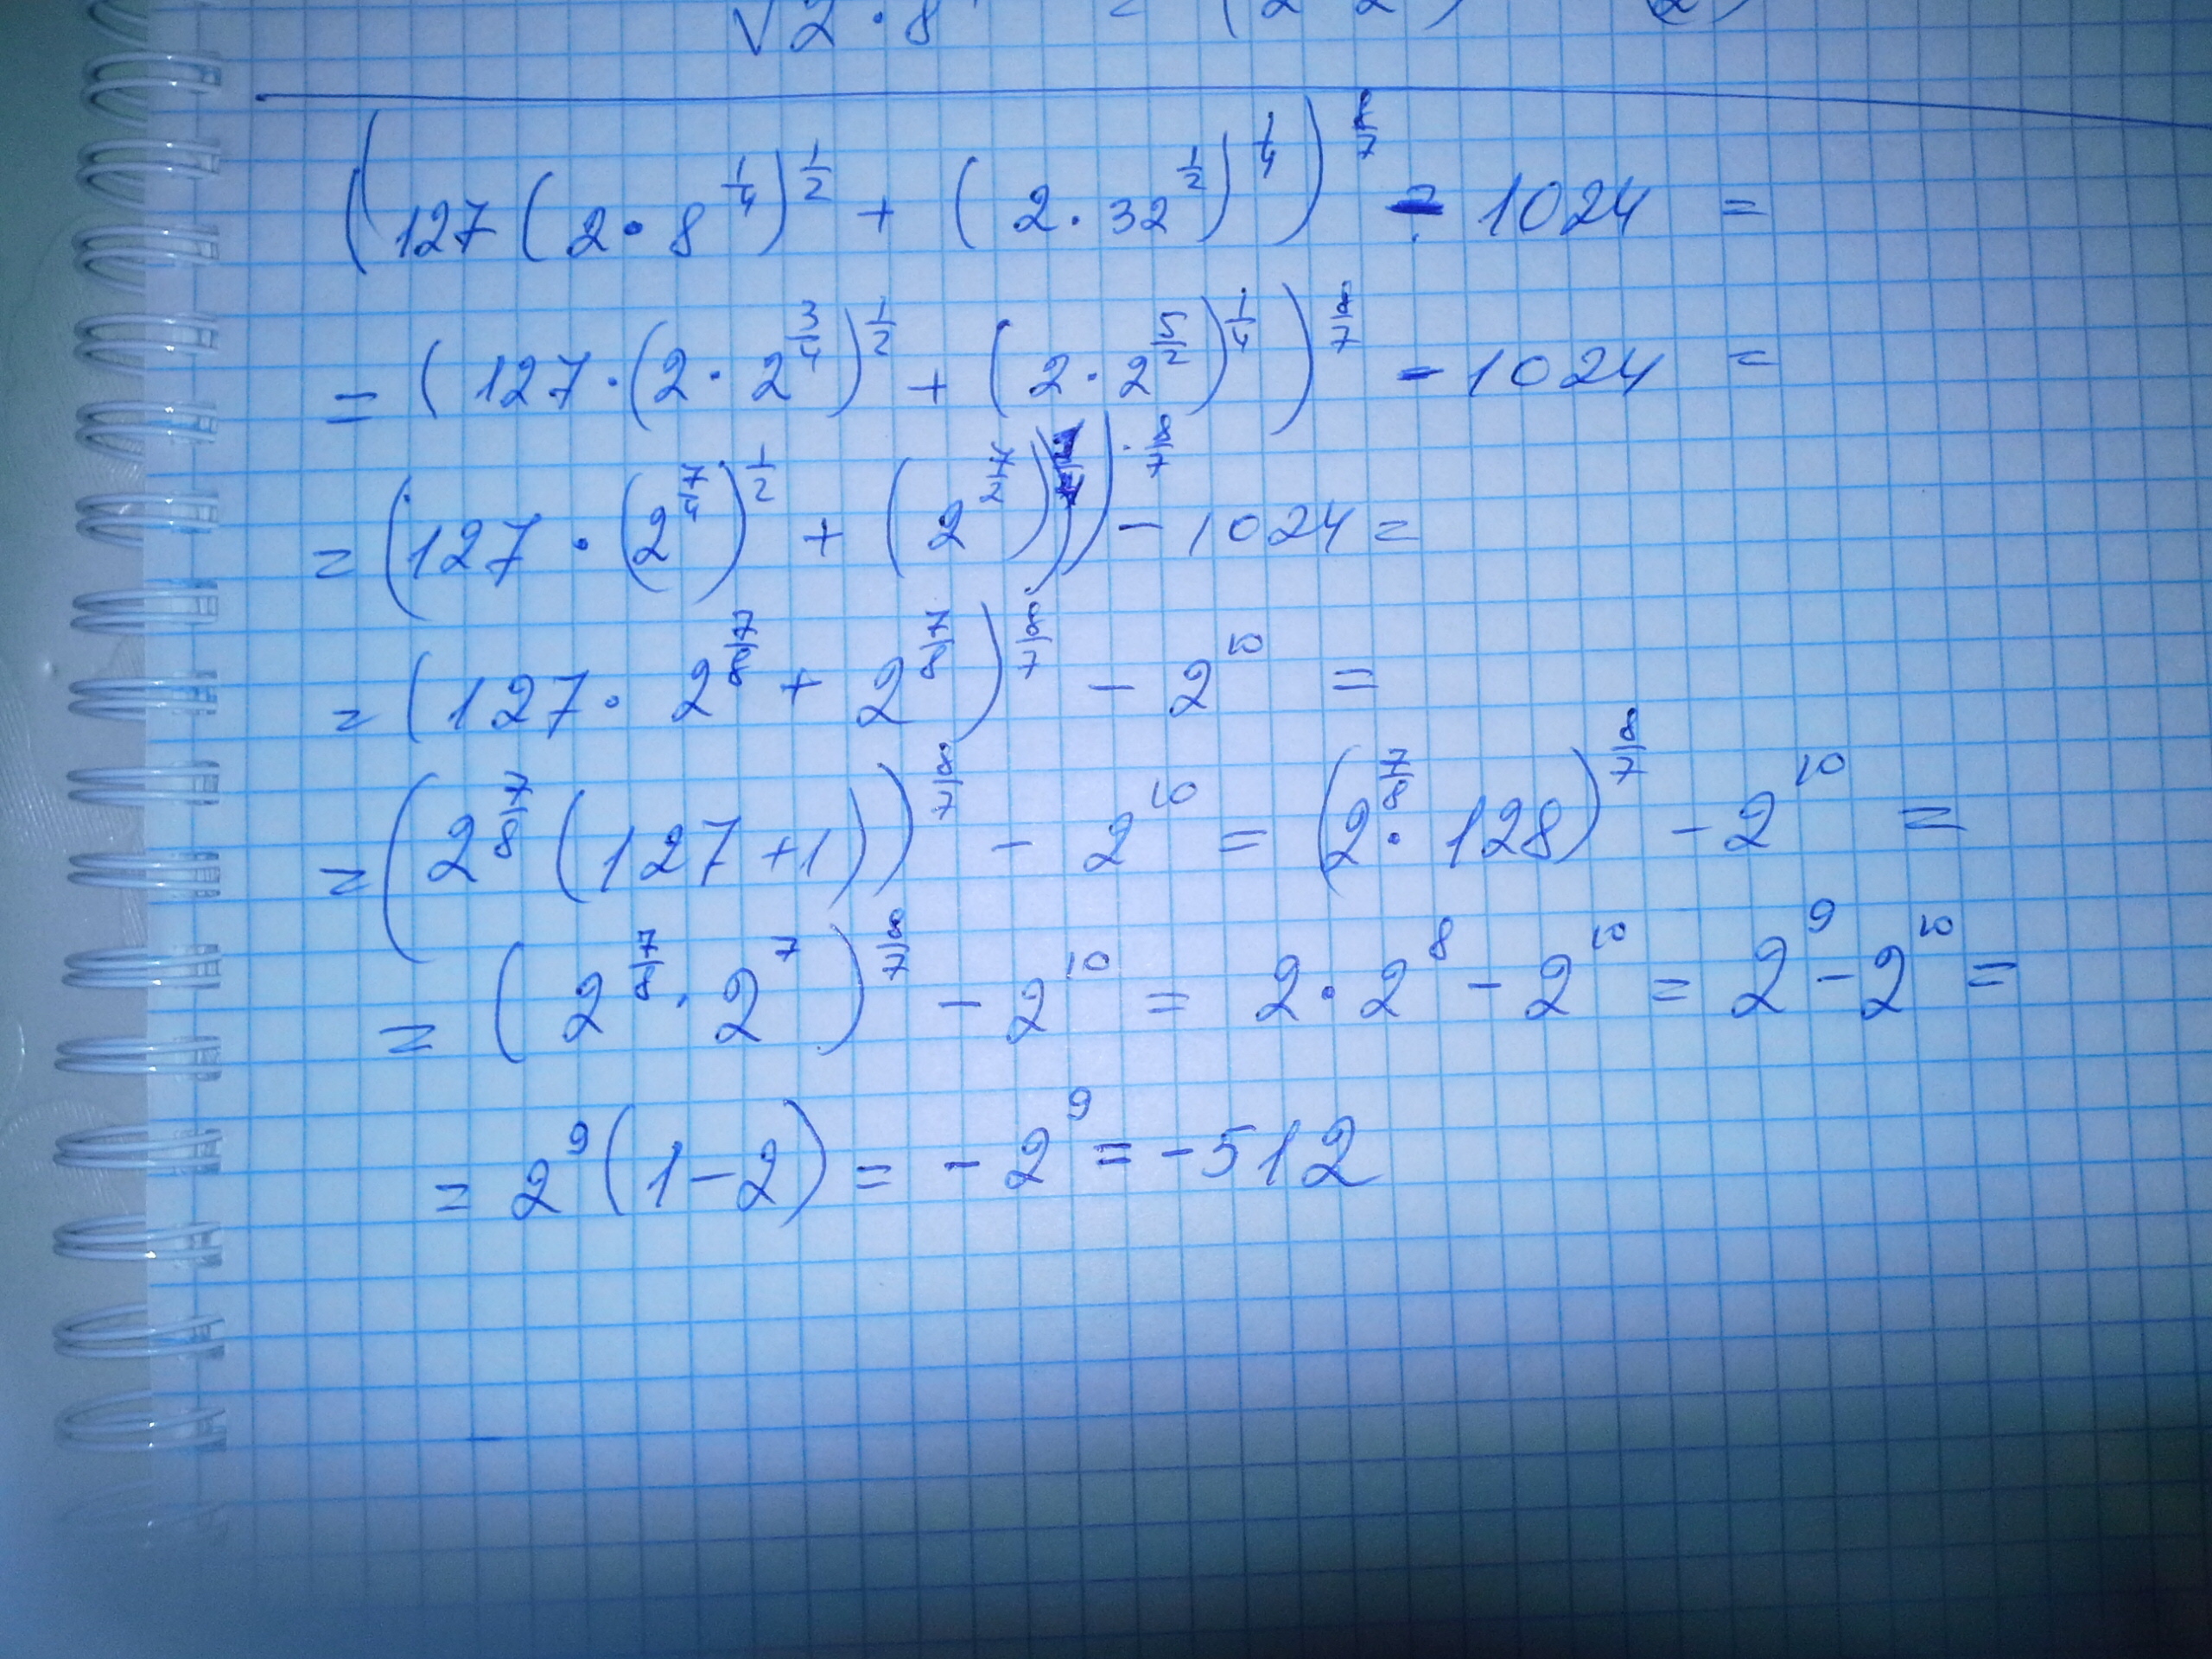 √2·8 = (2 2) (2)
(127(2·8^(1/4))^(1/2) + (2·32^(1/2))^(1/4))^(8/7) - 1024 =
= (127·(2·2^(3/4))^(1/2) + (2·2^(5/2))^(1/4))^(8/7) - 1024 =
= (127·(2^(7/4))^(1/2) + (2^(7/2)))^(8/7) - 1024 =
= (127·2^(7/8) + 2^(7/8))^(8/7) - 2^10 =
= (2^(7/8)(127+1))^(8/7) - 2^10 = (2^(7/8)·128)^(8/7) - 2^10 =
= (2^(7/8)·2^7)^(8/7) - 2^10 = 2·2^8 - 2^10 = 2^9 - 2^10 =
= 2^9(1-2) = -2^9 = -512